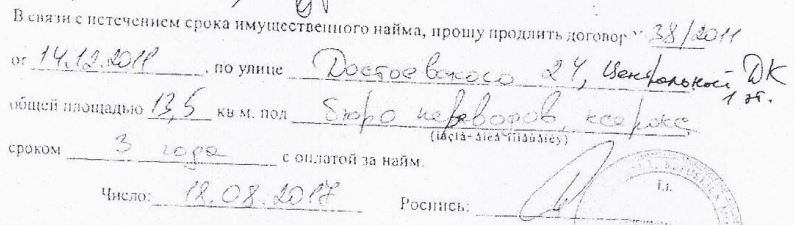 В связи с истечением срока имущественного найма, прошу продлить договор № 38/2011
от 14.12.2011, по улице Достоевского 24, Центральный ДК
1 эт.
общей площадью 13,5 кв м. под бюро переводов, ксерокс
сроком 3 года с оплатой за найм.
Число: 18.08.2017 Роспись: